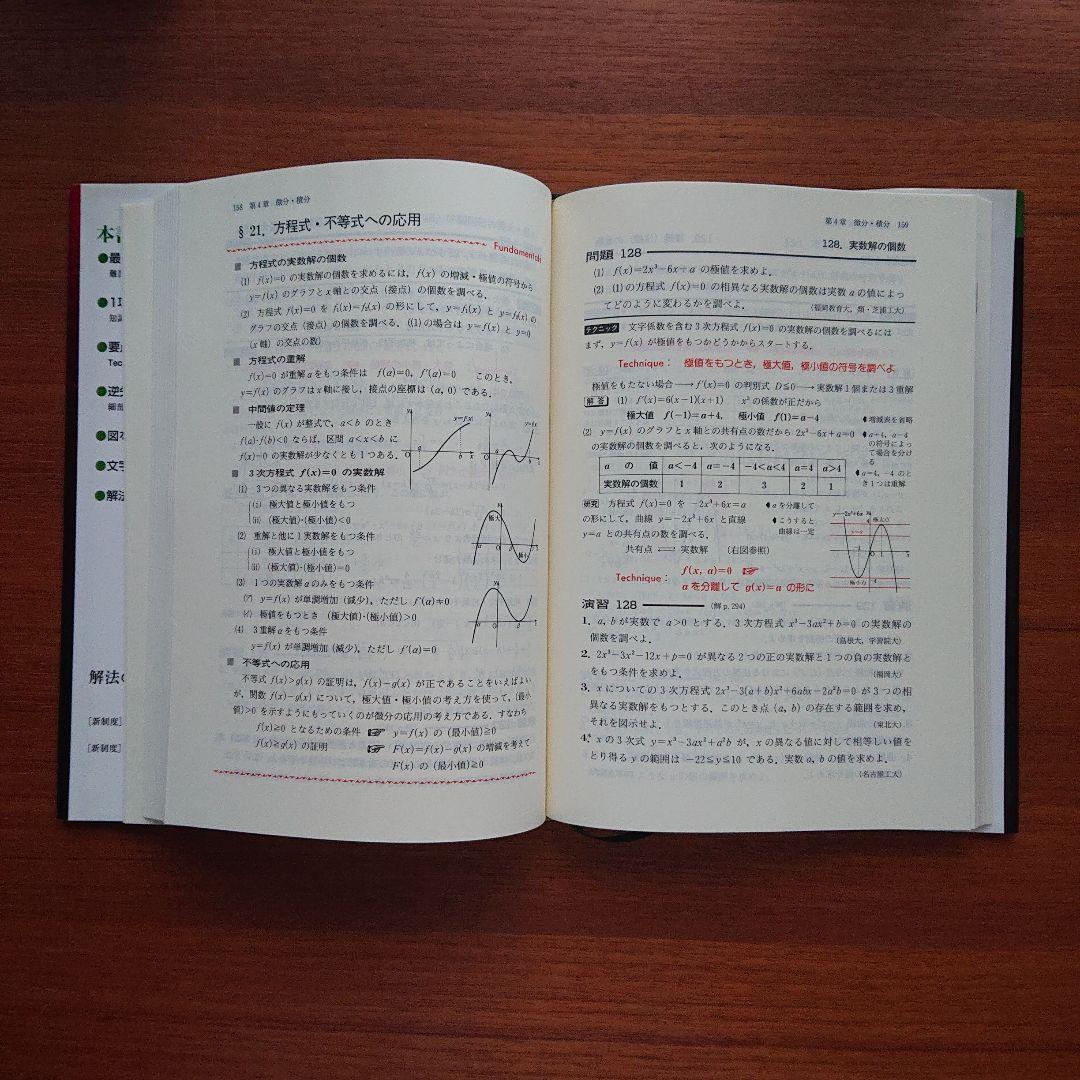 本
●最
●1
●要点
Tec
●逆
細部
●図
●文字
●解法
解法の
[新制度]
[新制度]
158 第4章 微分・積分
§ 21. 方程式・不等式への応用
Fundamentals
■ 方程式の実数解の個数
(1) f(x)=0 の実数解の個数を求めるには，f(x) の増減・極値の符号から
y=f(x)のグラフとx軸との交点（接点）の個数を調べる．
(2) 方程式 f(x)=0 を f₁(x)=f₂(x) の形にして，y=f₁(x) と y=f₂(x) の
グラフの交点（接点）の個数を調べる．((1)の場合は y=f(x) と y=0
(x 軸）の交点の数)
■ 方程式の重解
f(x)=0 が重解 a をもつ条件は f(a)=0, f′(a)=0 このとき，
y=f(x) のグラフは x 軸に接し，接点の座標は (a, 0) である．
■ 中間値の定理
一般に f(x) が整式で，a<b のとき
f(a)･f(b)<0 ならば，区間 a<x<b に
f(x)=0 の実数解が少なくとも1つある．
■ 3次方程式 f(x)=0 の実数解
(1) 3つの異なる実数解をもつ条件
(i) 極大値と極小値をもつ
(ii) (極大値)･(極小値)<0
(2) 重解と他に1実数解をもつ条件
(i) 極大値と極小値をもつ
(ii) (極大値)･(極小値)=0
(3) 1つの実数解 a のみをもつ条件
(ア) y=f(x) が単調増加（減少），ただし f′(a)≠0
(イ) 極値をもつとき (極大値)･(極小値)>0
(4) 3重解 a をもつ条件
y=f(x) が単調増加（減少），ただし f′(a)=0
■ 不等式への応用
不等式 f(x)>g(x) の証明は，f(x)−g(x) が正であることをいえばよい
が，関数 f(x)−g(x) について，極大値・極小値の考え方を使って，(最小
値)>0 を示すようにもっていくのが微分の応用の考え方である．すなわち
f(x)≧0 となるための条件 ☞ y=f(x) の (最小値)≧0
f(x)≧g(x) の証明 ☞ F(x)=f(x)−g(x) の増減を考えて
F(x) の (最小値)≧0
第4章 微分・積分 159
128. 実数解の個数
問題 128
(1) f(x)=2x³−6x+a の極値を求めよ．
(2) (1)の方程式 f(x)=0 の相異なる実数解の個数は実数 a の値によっ
てどのように変わるかを調べよ．
(福岡教育大，類・芝浦工大)
テクニック 文字係数を含む3次方程式 f(x)=0 の実数解の個数を調べるには
まず，y=f(x) が極値をもつかどうかからスタートする．
Technique： 極値をもつとき，極大値，極小値の符号を調べよ
極値をもたない場合 → f′(x)=0 の判別式 D≦0 → 実数解1個または3重解
解答 (1) f′(x)=6(x−1)(x+1) x³の係数が正だから
極大値 f(−1)=a+4, 極小値 f(1)=a−4
◀増減表を省略
(2) y=f(x) のグラフと x 軸との共有点の数だから 2x³−6x+a=0
の実数解の個数を調べると，次のようになる．
◀a+4, a−4
の符号によっ
て場合を分け
る
a の値 a<−4 a=−4 −4<a<4 a=4 a>4
実数解の個数 1 2 3 2 1
◀a=4, −4のと
き1つは重解
研究 方程式 f(x)=0 を −2x³+6x=a
の形にして，曲線 y=−2x³+6x と直線
y=a との共有点の数を調べる．
共有点 ⇄ 実数解 (右図参照)
◀aを分離して
◀こうすると
曲線は一定
y=−2x³+6x
極大点
極小点
Technique： f(x, a)=0 ☞
a を分離して g(x)=a の形に
演習 128 (解 p.294)
1. a, b が実数で a>0 とする．3次方程式 x³−3ax²+b=0 の実数解の
個数を調べよ．
(島根大，学習院大)
2. 2x³−3x²−12x+p=0 が異なる2つの正の実数解と1つの負の実数解と
をもつ条件を求めよ．
(福岡大)
3. x についての3次方程式 2x³−3(a+b)x²+6abx−2a²b=0 が3つの相
異なる実数解をもつとする．このとき点 (a, b) の存在する範囲を求め，
それを図示せよ．
(東北大)
4.* x の3次式 y=x³−3ax²+a²b が，x の異なる値に対して相等しい値を
とり得る y の範囲は −22≦y≦10 である．実数 a, b の値を求めよ．
(名古屋工大)